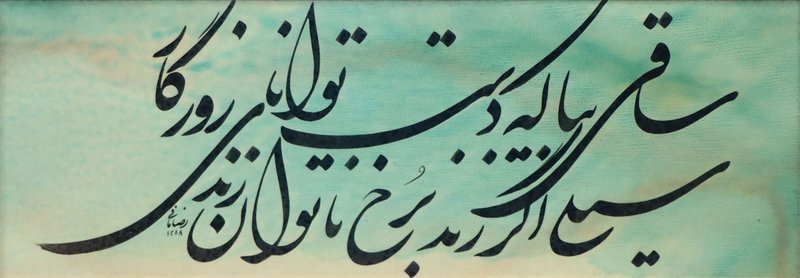 ساقی بیا که دست توانای روزگار
سیلی اگر زند برُخ ناتوان زند
رضا مافی
۱۳۵۸